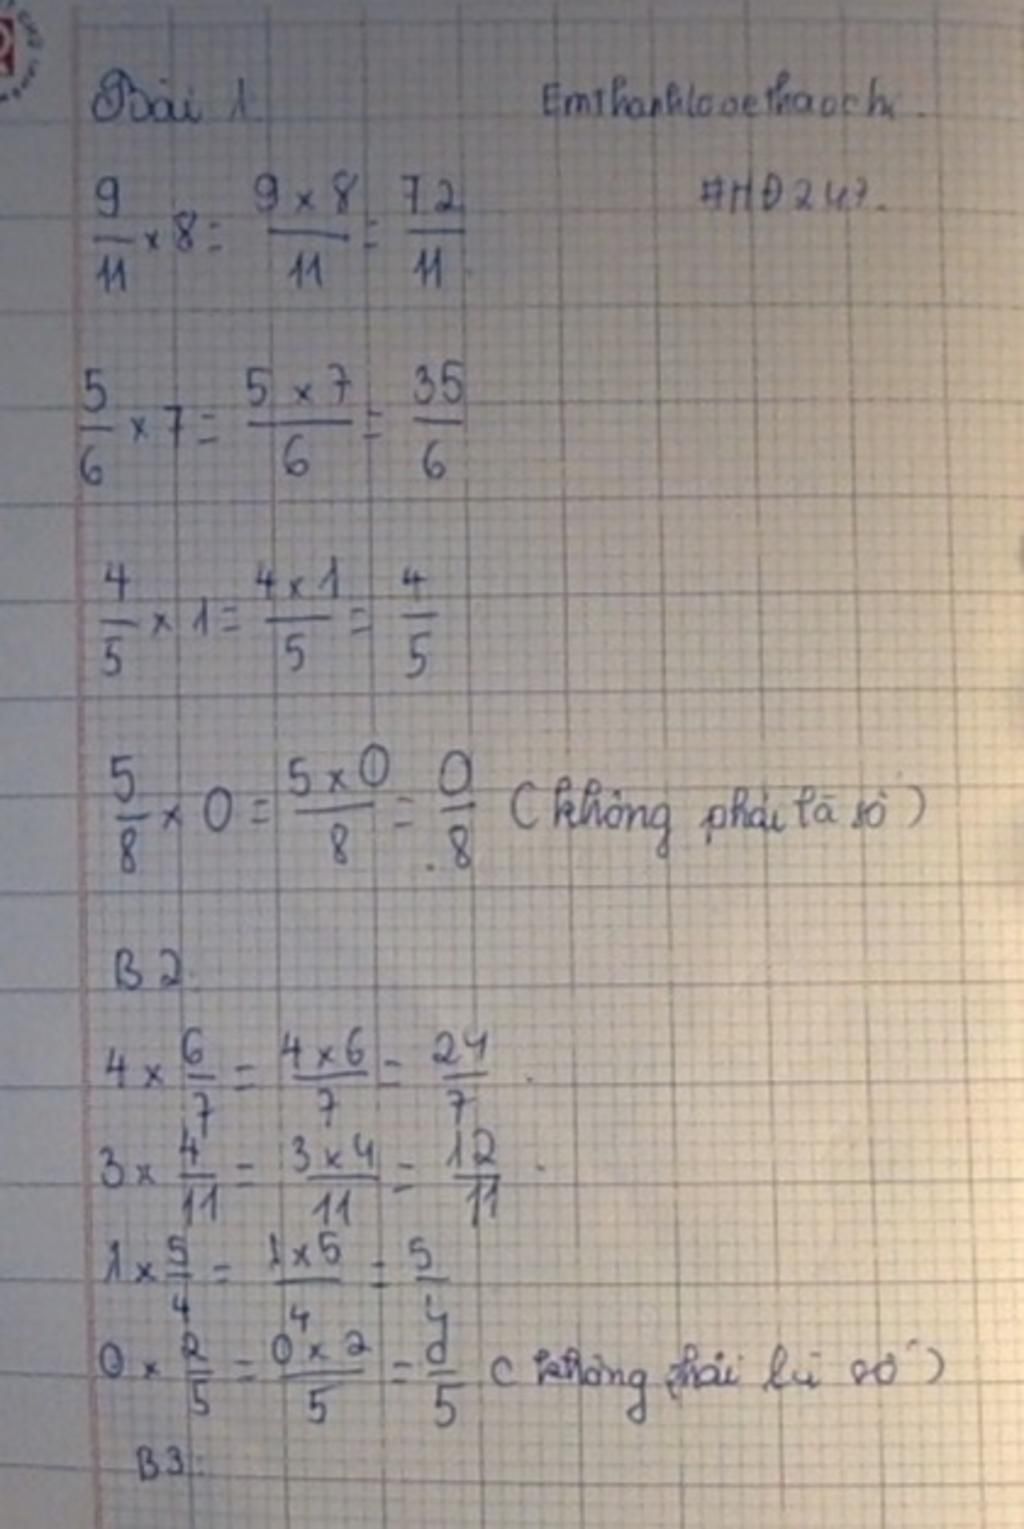 Bài 1
9/11 × 8 = 9 × 8/11 = 72/11
5/6 × 7 = 5 × 7/6 = 35/6
4/5 × 1 = 4 × 1/5 = 4/5
5/8 × 0 = 5 × 0/8 = 0/8 (không phải là số)
B2.
4 × 6/7 = 4 × 6/7 = 24/7
3 × 4/11 = 3 × 4/11 = 12/11
1 × 5/4 = 1 × 5/4 = 5/4
0 × 2/5 = 0 × 2/5 = 0/5 (không phải là số)
B3: